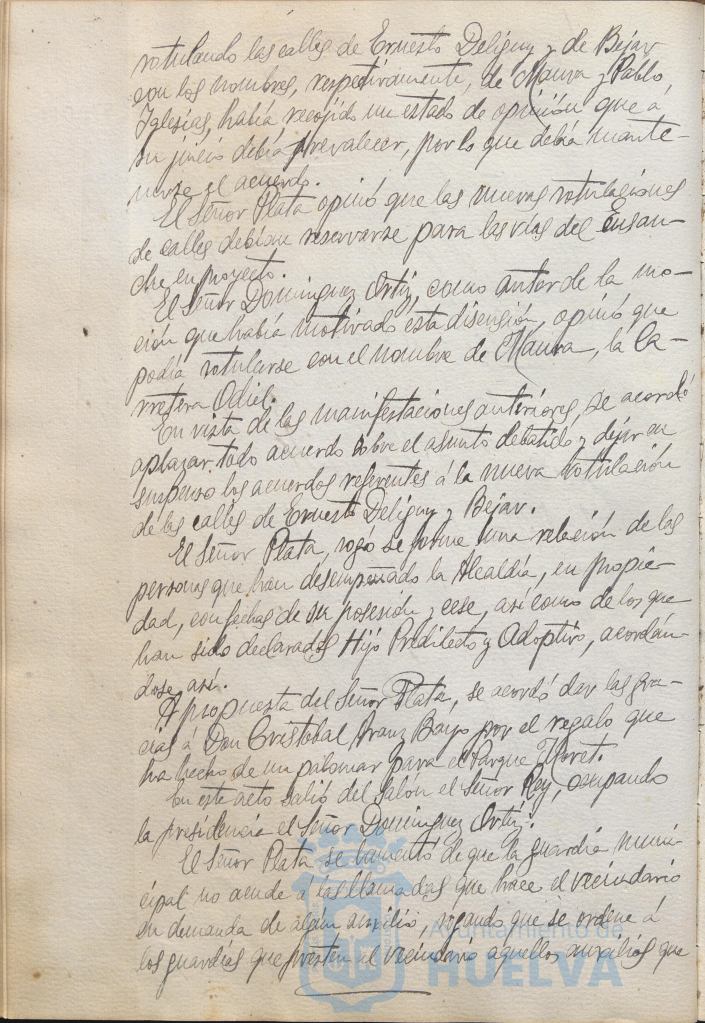 rotulando las calles de Ernesto Deligny y de Bejar
con los nombres, respectivamente, de Maura y Pablo
Iglesias, había recojido un estado de opinión que á
su juicio debía prevalecer, por lo que debía mante-
nerse el acuerdo.
El Señor Plata opinó que las nuevas rotulaciones
de calles debían reservarse para las vías del Ensan-
che, en proyecto.
El Señor Dominguez Ortiz, como autor de la mo-
ción que había motivado esta discusión, opinó que
podía rotularse con el nombre de Maura, la Ca-
rretera Odiel.
En vista de las manifestaciones anteriores, se acordó
aplazar todo acuerdo sobre el asunto debatido y dejar en
suspenso los acuerdos referentes á la nueva rotulación
de las calles de Ernesto Deligny y Bejar.
El Señor Plata, rogó se forme una relación de las
personas que han desempeñado la Alcaldía, en propie-
dad, con fechas de su posesión y cese, así como de los que
han sido declarados Hijo Predilecto y Adoptivo, acordán-
dose así.
A propuesta del Señor Plata, se acordó dar las gra-
cias á Don Cristobal Bayo por el regalo que
ha hecho de un palomar para el Parque Moret.
En este acto salió del Salón el Señor Rey, ocupando
la presidencia el Señor Dominguez Ortiz.
El Señor Plata se lamentó de que la guardia muni-
cipal no acude á las llamadas que hace el vecindario
en demanda de algún auxilio, rogando que se ordene á
los guardias que presten al vecindario aquellos auxilios que
Ayuntamiento de
HUELVA